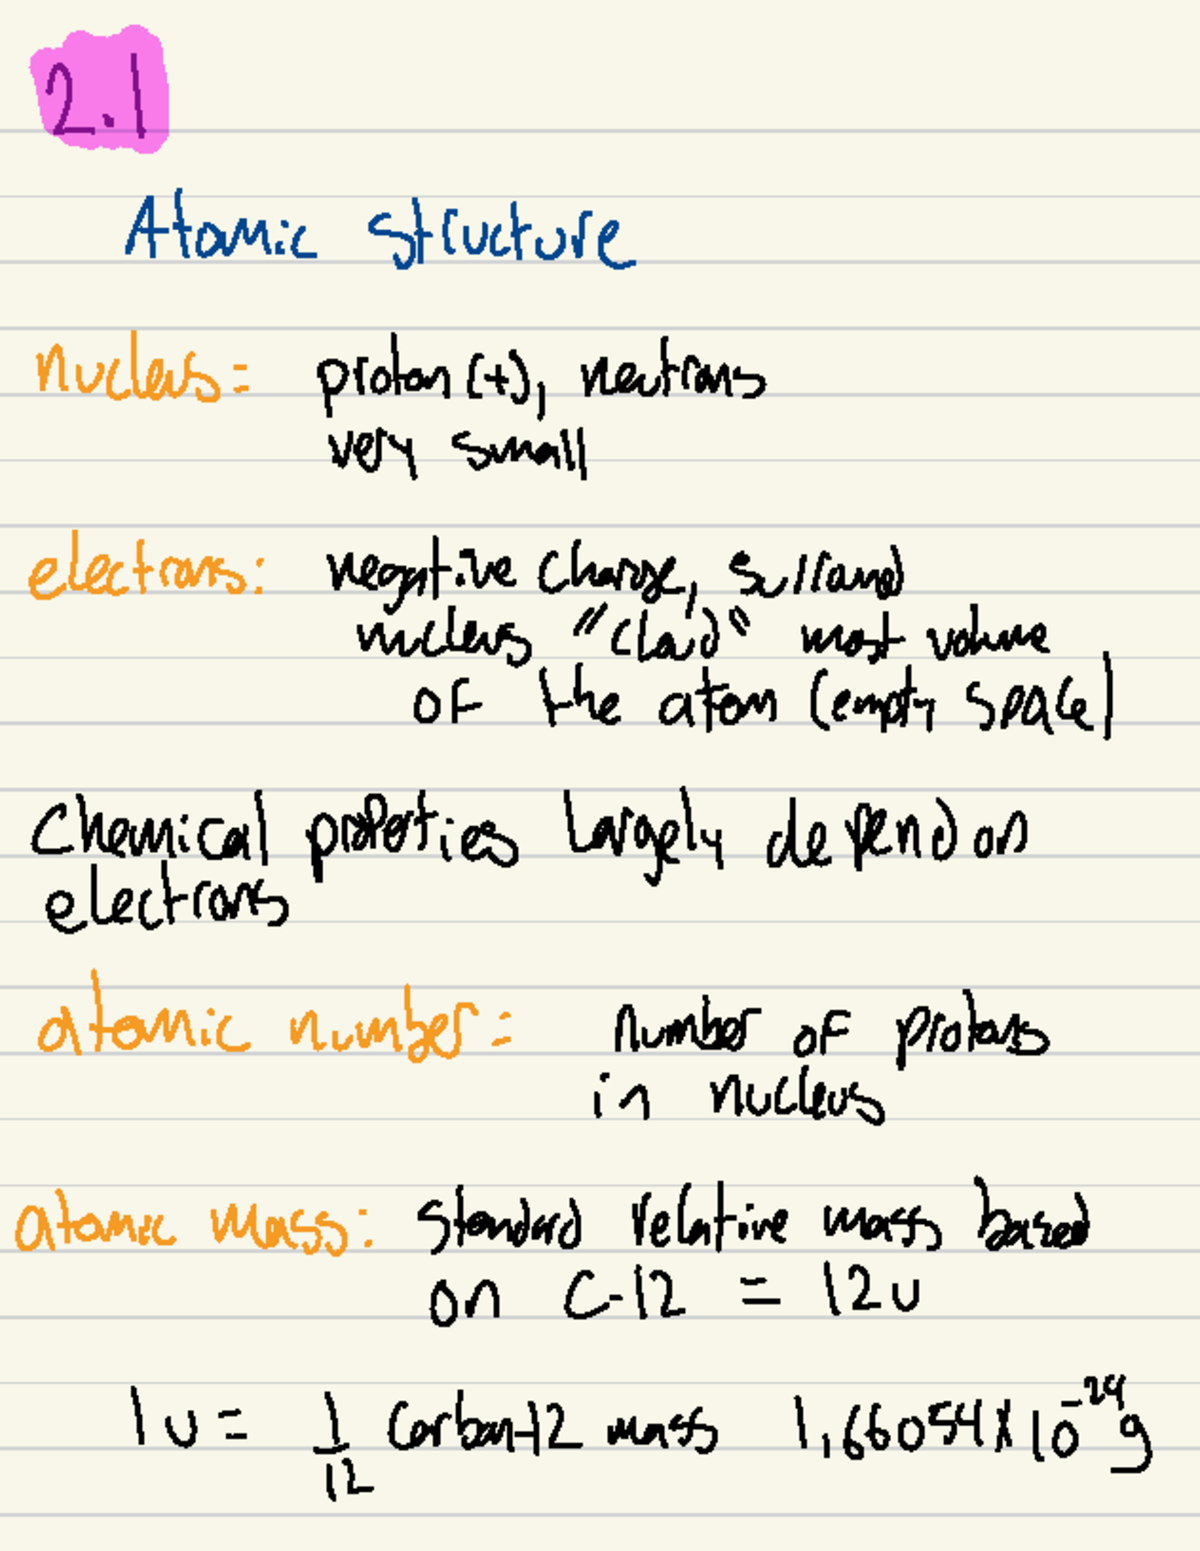 2.1
Atomic Structure
nucleus = proton (+), neutrons
very small
electrons: negative charge, surround
nucleus "cloud" most volume
of the atom (empty space)
Chemical properties largely depend on
electrons
atomic number = number of protons
in nucleus
atomic mass: standard relative mass based
on C-12 = 12u
1u = 1/12 Carbon-12 mass 1.66054x10⁻²⁴g